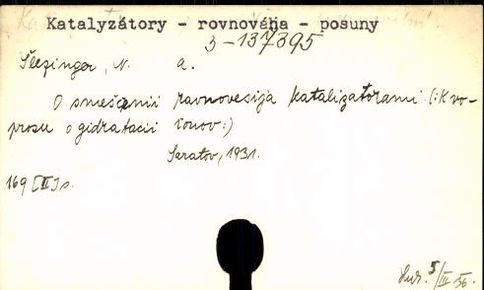 Katalyzátory - rovnováha - posuny
3-137395
Šlezinger, N. A.
O smeščenii ravnovesija katalizatorami (:K vo-
prosu o gidratacii ionov:)
Saratov, 1931.
169 [II] s.
5/III 56.